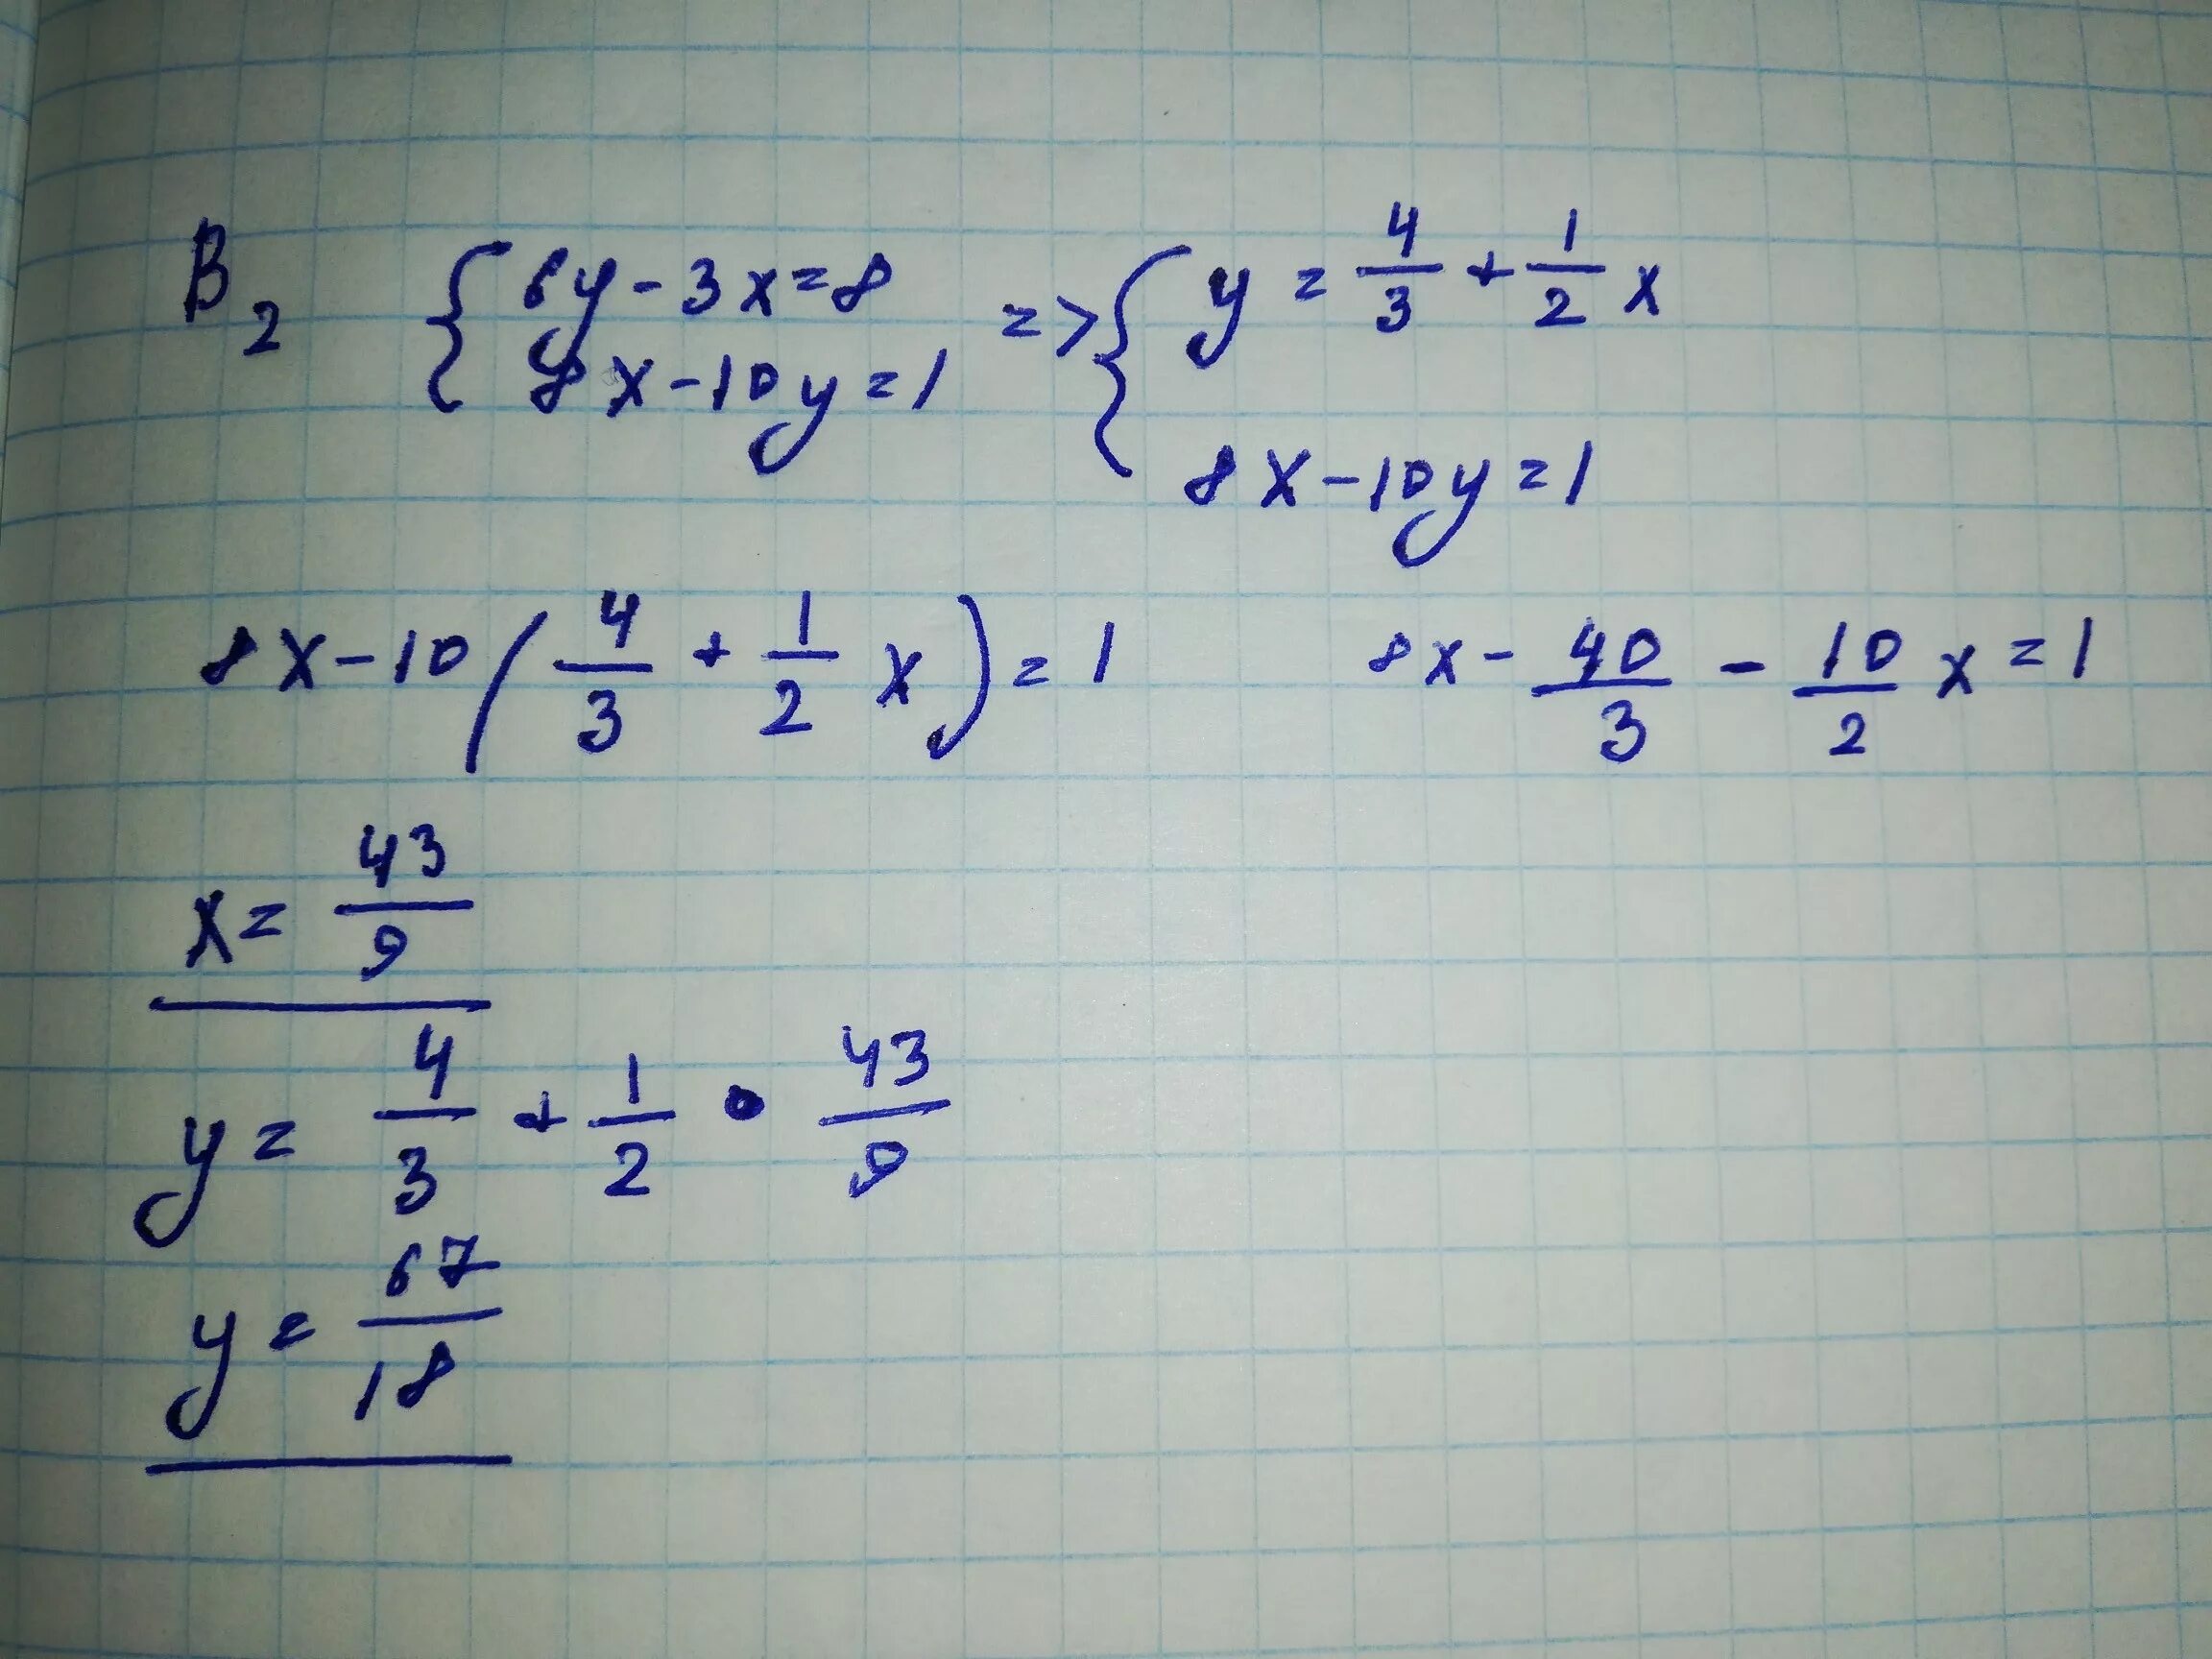 B₂ { 6y - 3x = 8 => { y = 4/3 + 1/2 x
8x - 10y = 1 8x - 10y = 1
8x - 10(4/3 + 1/2 x) = 1 8x - 40/3 - 10/2 x = 1
x = 43/9
y = 4/3 + 1/2 • 43/9
y = 67/18